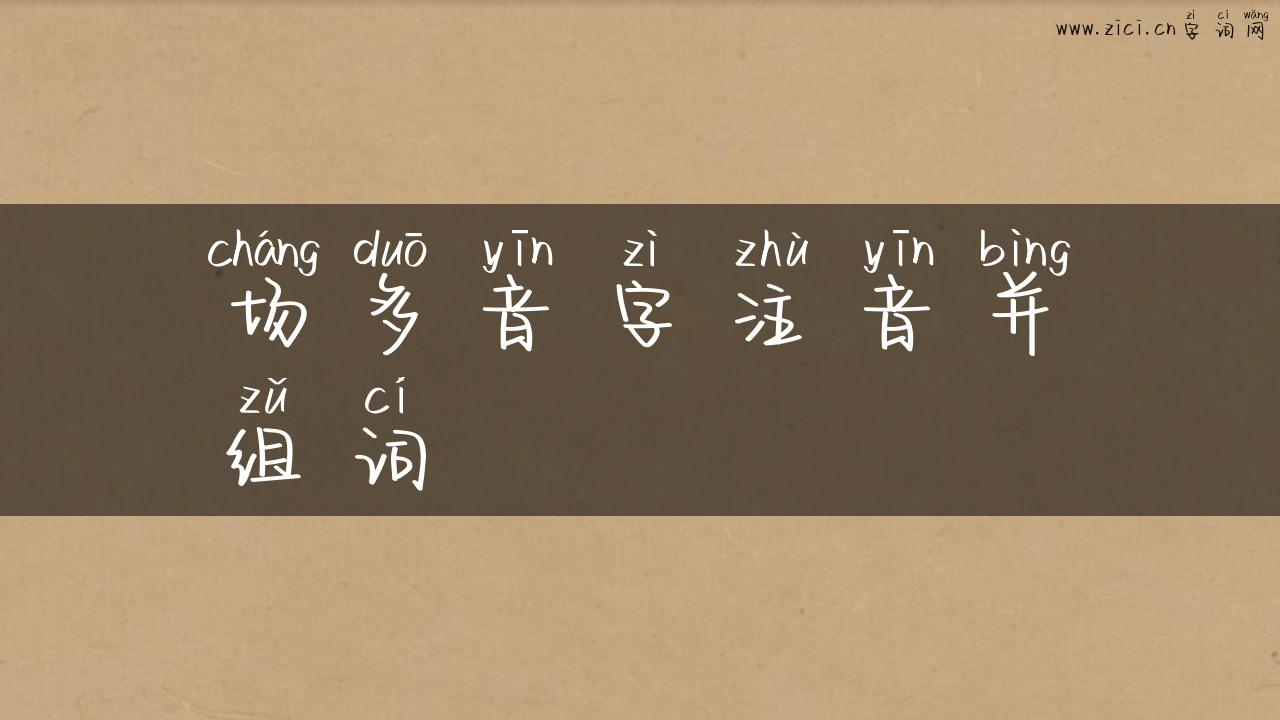 zì cí wǎng
www.zici.cn 字词网
cháng duō yīn zì zhù yīn bìng
场多音字注音并
zǔ cí
组词